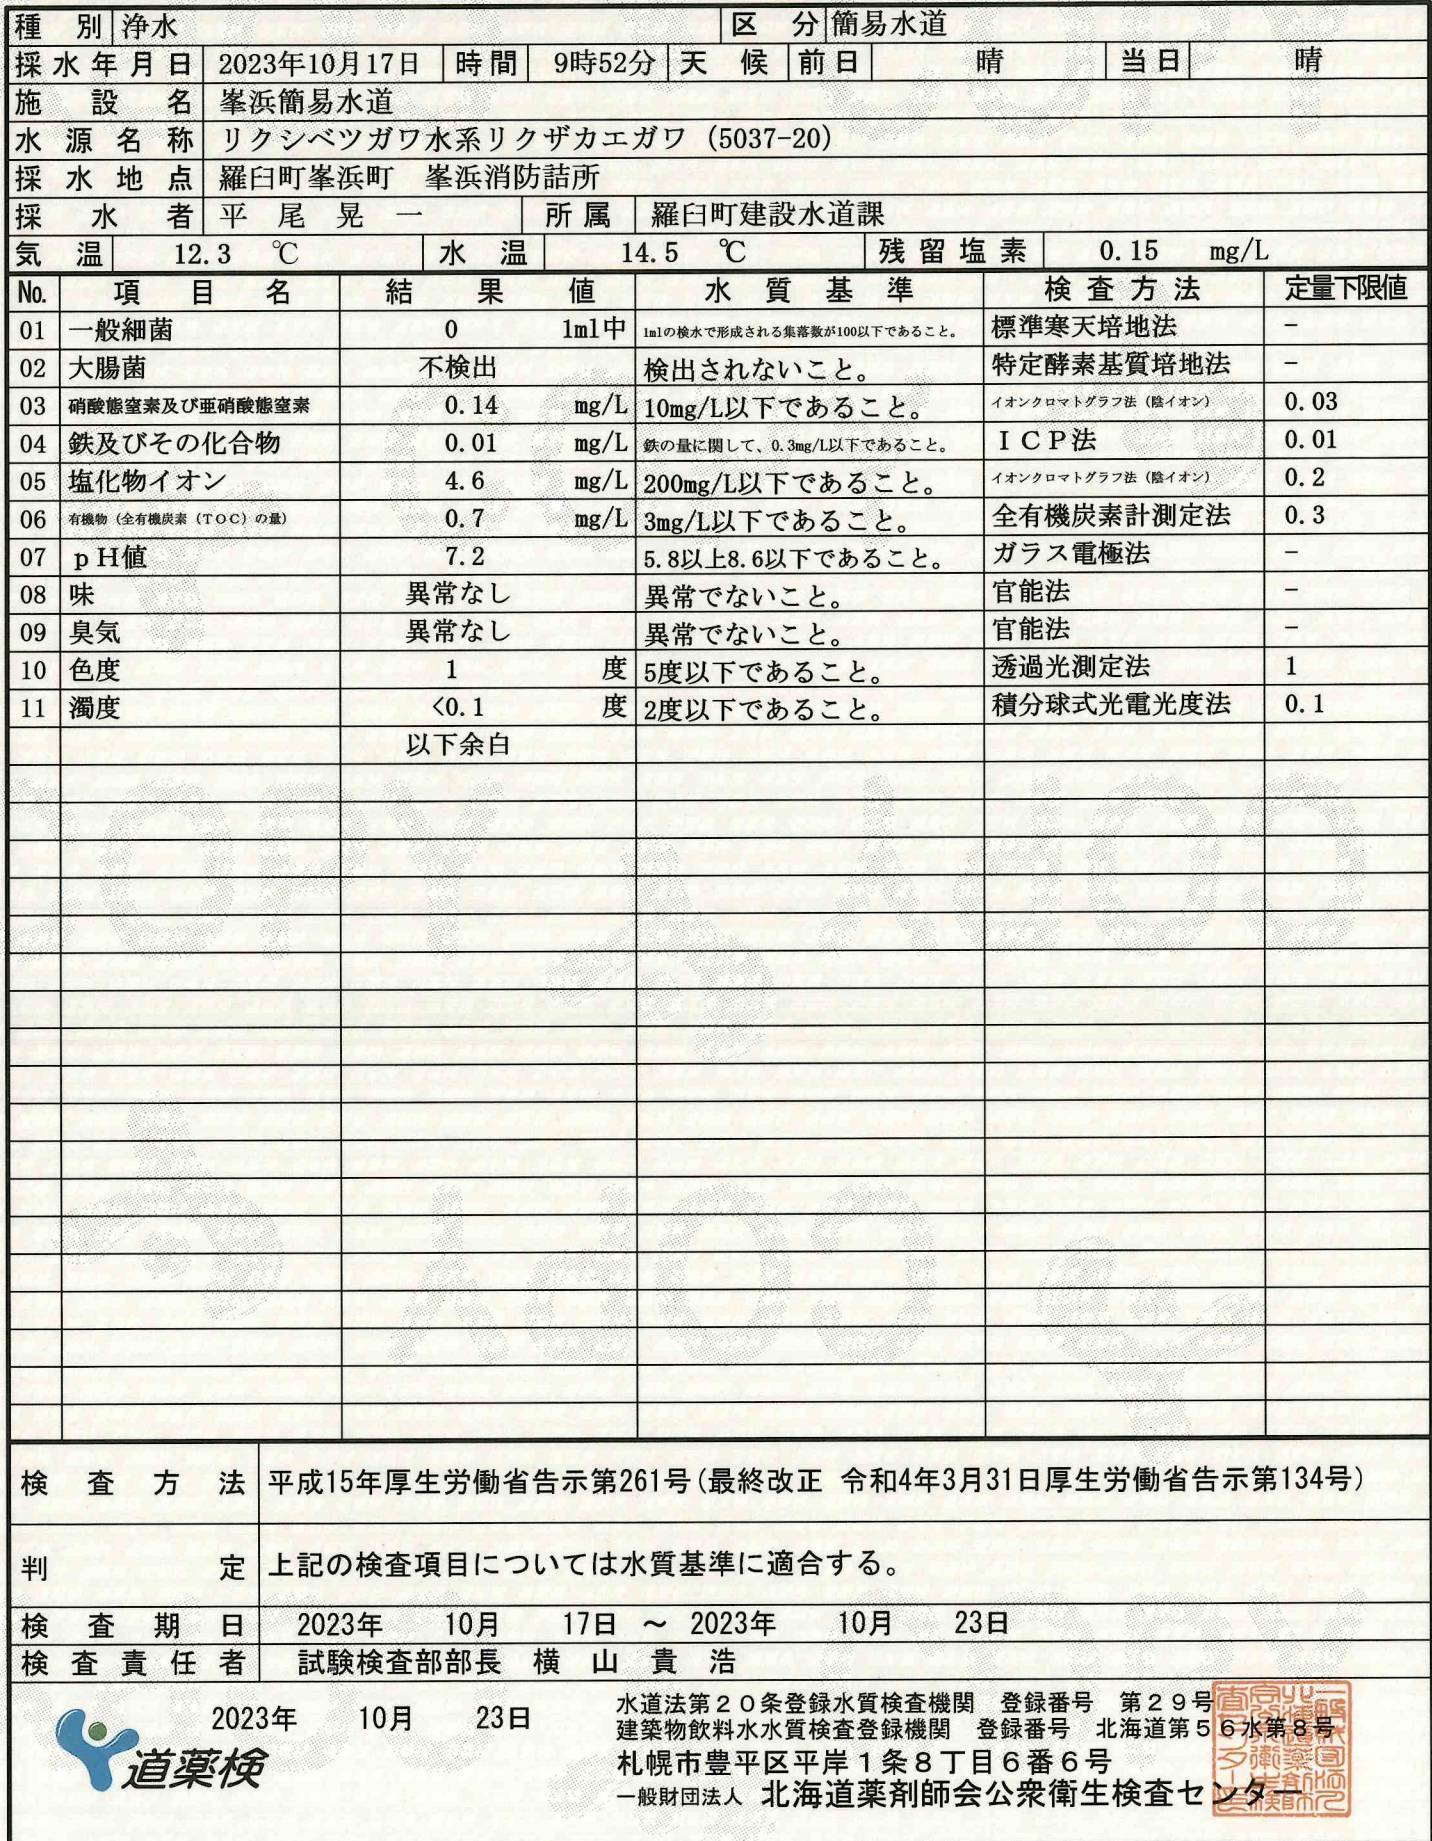 種別 浄水 区分 簡易水道
採水年月日 2023年10月17日 時間 9時52分 天候 前日 晴 当日 晴
施設名 峯浜簡易水道
水源名称 リクシベツガワ水系リクザカエガワ（5037-20）
採水地点 羅臼町峯浜町　峯浜消防詰所
採水者 平尾晃一 所属 羅臼町建設水道課
気温 12.3 ℃ 水温 14.5 ℃ 残留塩素 0.15 mg/L
No. 項目名 結果値 水質基準 検査方法 定量下限値
01 一般細菌 0 1ml中 1mlの検水で形成される集落数が100以下であること。 標準寒天培地法 −
02 大腸菌 不検出 検出されないこと。 特定酵素基質培地法 −
03 硝酸態窒素及び亜硝酸態窒素 0.14 mg/L 10mg/L以下であること。 イオンクロマトグラフ法（陰イオン） 0.03
04 鉄及びその化合物 0.01 mg/L 鉄の量に関して、0.3mg/L以下であること。 ＩＣＰ法 0.01
05 塩化物イオン 4.6 mg/L 200mg/L以下であること。 イオンクロマトグラフ法（陰イオン） 0.2
06 有機物（全有機炭素（TOC）の量） 0.7 mg/L 3mg/L以下であること。 全有機炭素計測定法 0.3
07 ｐH値 7.2 5.8以上8.6以下であること。 ガラス電極法 −
08 味 異常なし 異常でないこと。 官能法 −
09 臭気 異常なし 異常でないこと。 官能法 −
10 色度 1 度 5度以下であること。 透過光測定法 1
11 濁度 <0.1 度 2度以下であること。 積分球式光電光度法 0.1
以下余白
COPY COPY
COPY
検査方法 平成15年厚生労働省告示第261号(最終改正 令和4年3月31日厚生労働省告示第134号)
判定 上記の検査項目については水質基準に適合する。
検査期日 2023年 10月 17日 ～ 2023年 10月 23日
検査責任者 試験検査部部長 横山貴浩
2023年 10月 23日
水道法第２０条登録水質検査機関　登録番号　第２９号
建築物飲料水水質検査登録機関　登録番号　北海道第５６水第８号
札幌市豊平区平岸１条８丁目６番６号
道薬検
一般財団法人 北海道薬剤師会公衆衛生検査センター